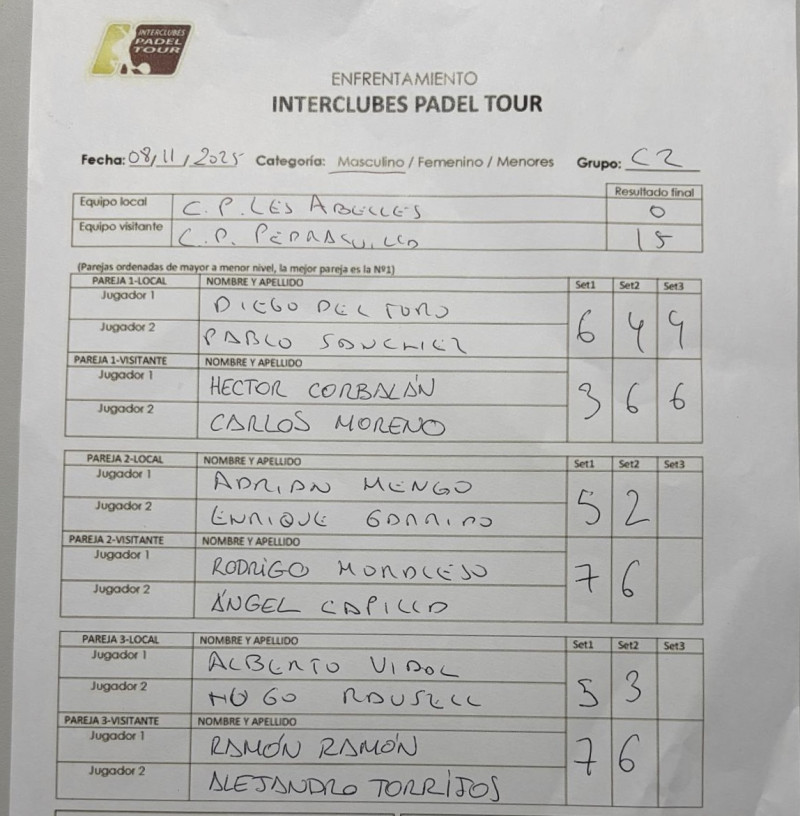 INTERCLUBES
PADEL
TOUR
ENFRENTAMIENTO
INTERCLUBES PADEL TOUR
Fecha: 08/11/2025 Categoría: Masculino / Femenino / Menores Grupo: C2
Resultado final
Equipo local C.P. LES ABELLES 0
Equipo visitante C.P. PEDRAQUILLO 15
(Parejas ordenadas de mayor a menor nivel, la mejor pareja es la Nº1)
PAREJA 1-LOCAL NOMBRE Y APELLIDO Set1 Set2 Set3
Jugador 1 DIEGO DEL TORO
Jugador 2 PABLO SANCHEZ
6 4 4
PAREJA 1-VISITANTE NOMBRE Y APELLIDO
Jugador 1 HECTOR CORBALÁN
Jugador 2 CARLOS MORENO
3 6 6
PAREJA 2-LOCAL NOMBRE Y APELLIDO Set1 Set2 Set3
Jugador 1 ADRIAN MENGO
Jugador 2 ENRIQUE GARRIDO
5 2
PAREJA 2-VISITANTE NOMBRE Y APELLIDO
Jugador 1 RODRIGO MORALEJO
Jugador 2 ÁNGEL CAPILLA
7 6
PAREJA 3-LOCAL NOMBRE Y APELLIDO Set1 Set2 Set3
Jugador 1 ALBERTO VIDAL
Jugador 2 HUGO RAUSELL
5 3
PAREJA 3-VISITANTE NOMBRE Y APELLIDO
Jugador 1 RAMÓN RAMÓN
Jugador 2 ALEJANDRO TORRIJOS
7 6